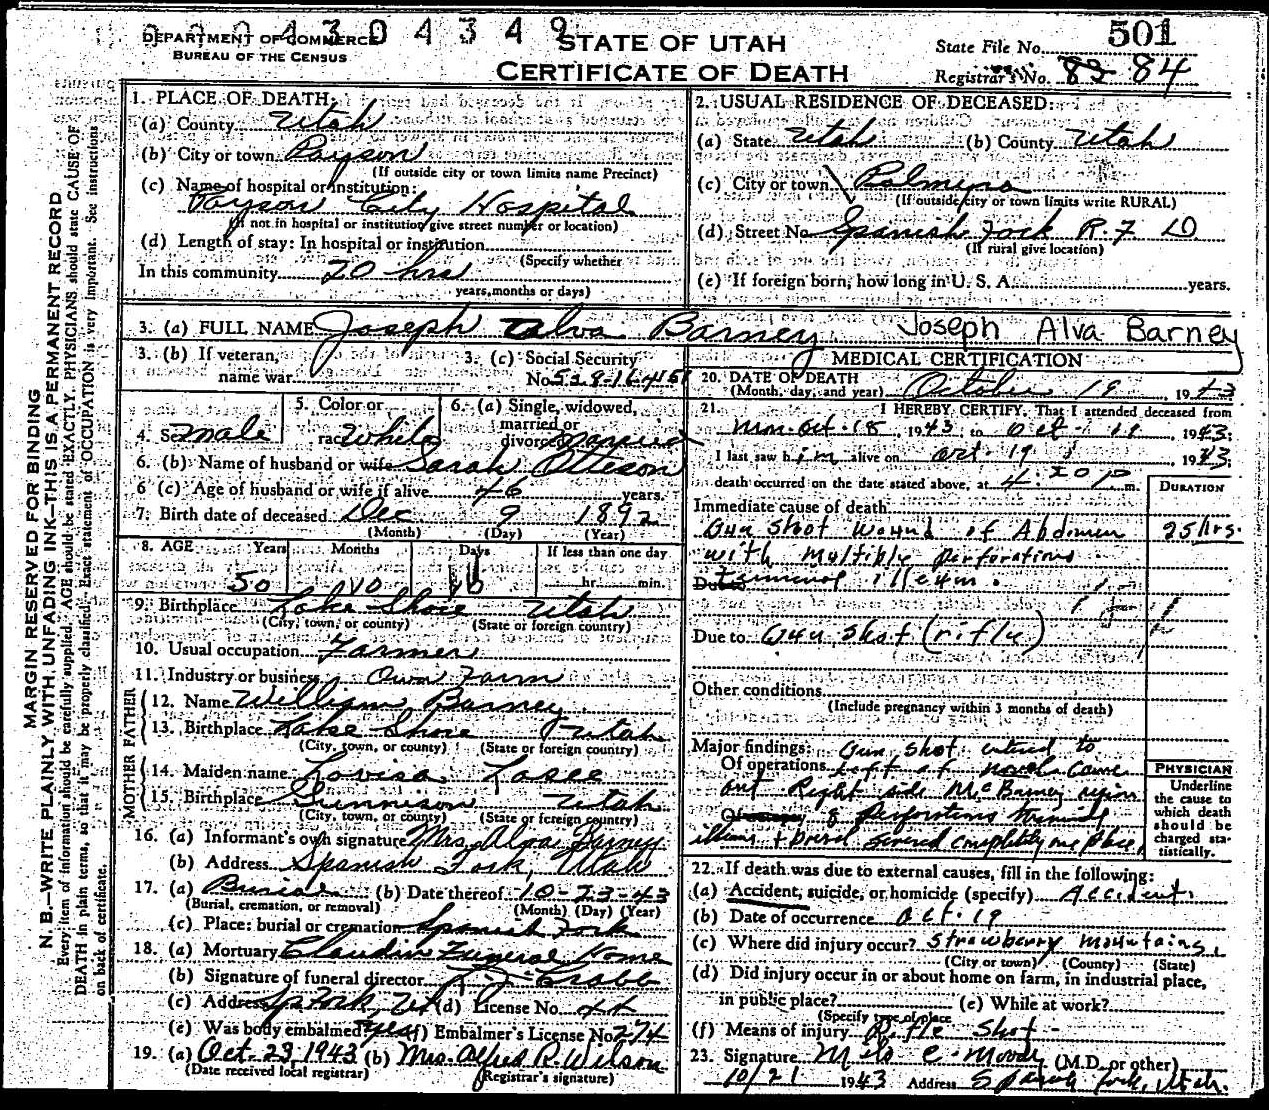 0004304349
DEPARTMENT OF COMMERCE
BUREAU OF THE CENSUS
STATE OF UTAH
CERTIFICATE OF DEATH
State File No. 501
Registrar's No. 83 84
1. PLACE OF DEATH:
(a) County Utah
(b) City or town Payson
(If outside city or town limits name Precinct)
(c) Name of hospital or institution:
Payson City Hospital
(If not in hospital or institution give street number or location)
(d) Length of stay: In hospital or institution
(Specify whether
In this community 20 hrs
years, months or days)
2. USUAL RESIDENCE OF DECEASED:
(a) State Utah (b) County Utah
(c) City or town Palmyra
(If outside city or town limits write RURAL)
(d) Street No. Spanish Fork R.F.D.
(If rural give location)
(e) If foreign born, how long in U. S. A. years.
3. (a) FULL NAME Joseph Alva Barney Joseph Alva Barney
3. (b) If veteran,
name war
3. (c) Social Security
No. 528-16-4151
4. Sex male
5. Color or
race White
6. (a) Single, widowed,
married or
divorced married
6. (b) Name of husband or wife Sarah Otteson
6 (c) Age of husband or wife if alive 46 years.
7. Birth date of deceased Dec 9 1892
(Month) (Day) (Year)
8. AGE Years Months Days If less than one day
50 10 10 hr. min.
9. Birthplace Lake Shore Utah
(City, town, or county) (State or foreign country)
10. Usual occupation Farmer
11. Industry or business Own Farm
FATHER
12. Name William Barney
13. Birthplace Lake Shore Utah
(City, town, or county) (State or foreign country)
MOTHER
14. Maiden name Lovisa Losee
15. Birthplace Gunnison Utah
(City, town, or county) (State or foreign country)
16. (a) Informant's own signature Mrs. Alva Barney
(b) Address Spanish Fork, Utah
17. (a) Burial (b) Date thereof 10-23-43
(Burial, cremation, or removal) (Month) (Day) (Year)
(c) Place: burial or cremation Spanish Fork
18. (a) Mortuary Claudin Funeral Home
(b) Signature of funeral director
(c) Address Sp Fork, Ut (d) License No. 44
(e) Was body embalmed? yes (f) Embalmer's License No. 274
19. (a) Oct-23, 1943 (b) Mrs. Alfred R. Wilson
(Date received local registrar) (Registrar's signature)
MEDICAL CERTIFICATION
20. DATE OF DEATH
(Month, day, and year) October 19, 1943
21. I HEREBY CERTIFY, That I attended deceased from
Mon. Oct. 18, 1943, to Oct. 19, 1943;
I last saw him alive on Oct. 19, 1943;
death occurred on the date stated above, at 4:20 P m.
DURATION
Immediate cause of death
Gun shoot wound of Abdomen 25 hrs.
with multible perforations
Due to terminal illeum.
Due to Gun shot (rifle)
Other conditions
(Include pregnancy within 3 months of death)
Major findings: Gun shot entered to
Of operations Left of navel came
out Right side McBarney region
Of autopsy 8 perforations terminal
illium & bowel severed completely one place
PHYSICIAN
Underline
the cause to
which death
should be
charged sta-
tistically.
22. If death was due to external causes, fill in the following:
(a) Accident, suicide, or homicide (specify) Accident.
(b) Date of occurrence Oct. 19
(c) Where did injury occur? Strawberry mountains,
(City or town) (County) (State)
(d) Did injury occur in or about home on farm, in industrial place,
in public place? (e) While at work?
(Specify type of place
(f) Means of injury Rifle Shot
23. Signature Milo C. Moody (M.D. or other)
10/21 1943 Address Spanish Fork, Utah.
MARGIN RESERVED FOR BINDING
N. B.—WRITE PLAINLY WITH UNFADING INK—THIS IS A PERMANENT RECORD
Every item of information should be carefully supplied. AGE should be stated EXACTLY. PHYSICIANS should state CAUSE OF
DEATH in plain terms, so that it may be properly classified. Exact statement of OCCUPATION is very important. See instructions
on back of certificate.